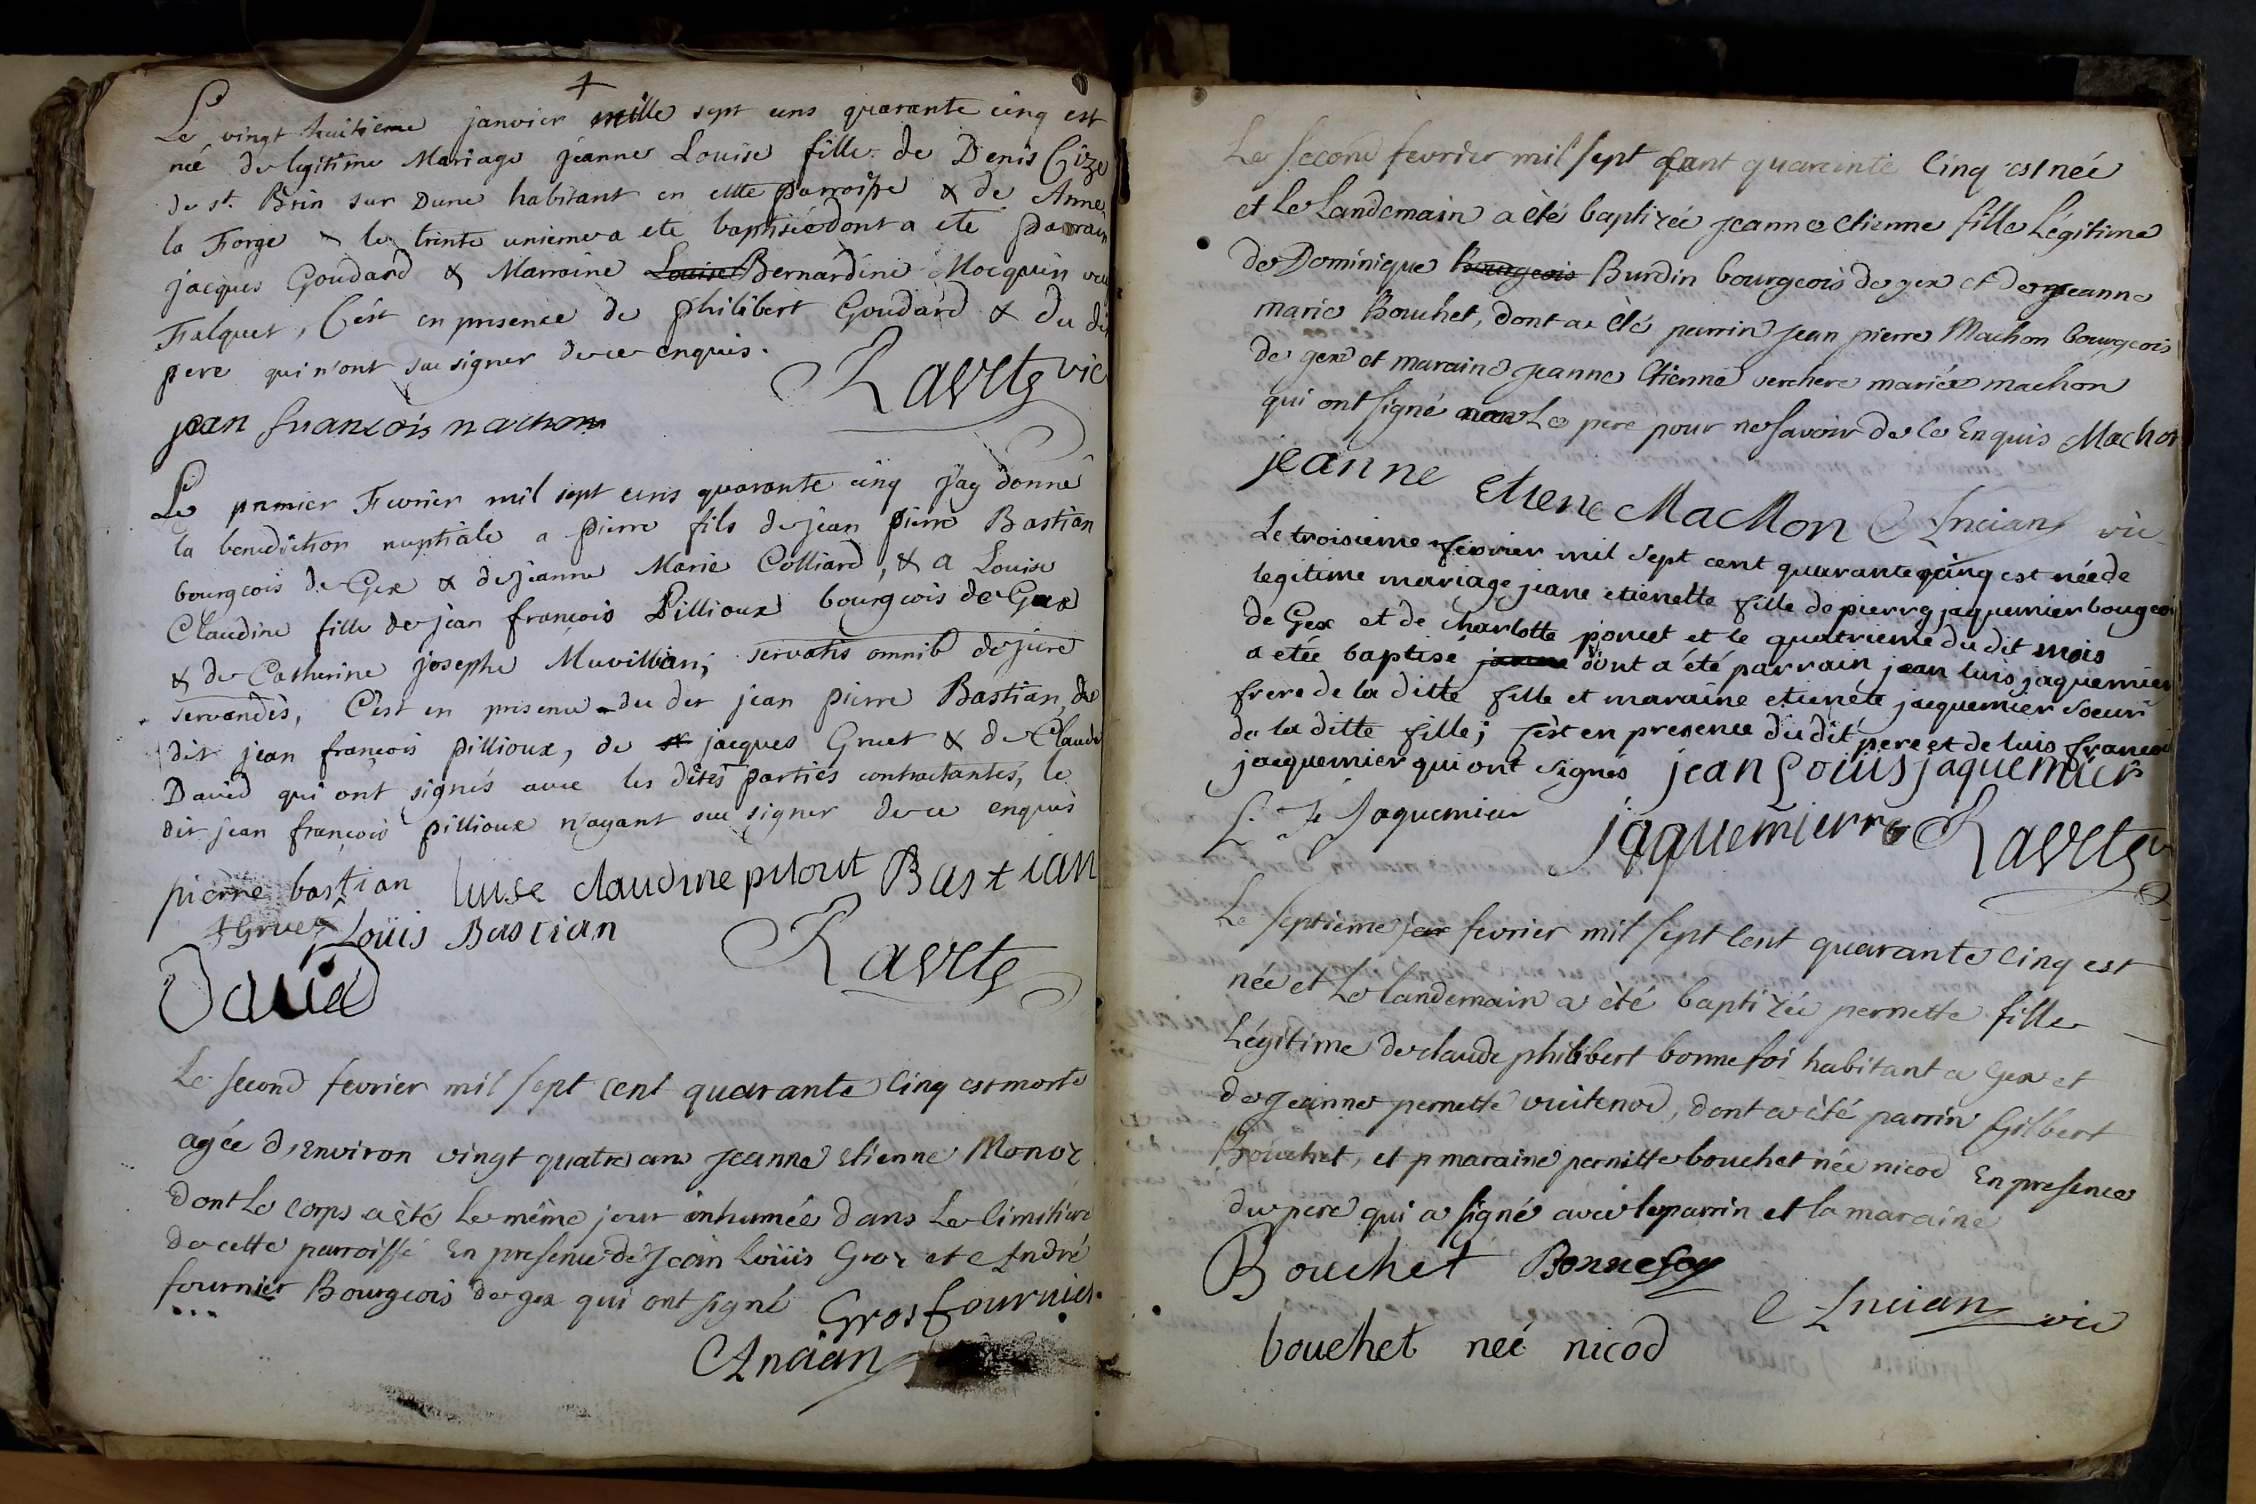 Le vingt huitieme janvier mille sept cens quarante cinq est
neé de legitime Mariage jeanne Louise fille de Denis Cize
de st. Brin sur Dune habitant en cette parroisse & de Anne
la Forge le trente unieme a eté baptisée dont a eté parrain
jacques Goudard & Marraine Louise Bernardine Mocquin
Falquet, C'est en presence de philibert Goudard & du dit
pere qui n'ont sue signer de ce enquis.
Ravets vic
jean francois machon
Le premier Fevrier mil sept cens quarante cinq j'ay donné
la benediction nuptiale a pierre fils de jean pierre Bastian
bourgeois de Gex & de jeanne Marie Colliard, & a Louise
Claudine fille de jean françois Pillioux bourgeois de Gex
& de Catherine josephe Muvillian; servatis omnib de jure
servandis, C'est en presence du dit jean pierre Bastian, du
dit jean françois pillioux, de jacques Gruet & de Claude
David qui ont signés avec les dites parties contractantes, le
dit jean françois pillioux n'ayant sue signer de ce enquis
pierre bastian luise claudine pilout Bastian
Gruet Loüis Bastian
Ravets
David
Le second fevrier mil sept cent quarante cinq est morte
agée d'environ vingt quatre ans jeanne etienne Monoz
dont le corps a été le même jour inhumée dans le cimitiere
de cette parroisse En presence de jean Loüis Groz et André
fournier Bourgeois de gex qui ont signé Gros fournier
Ancian
Le second fevrier mil sept cent quarante cinq est née
et le landemain a été baptizée jeanne etienne fille Légitime
de Dominique Bourgeois Burdin bourgeois de gex et de jeanne
marie Bouchet, dont a été parrin jean pierre Machon bourgeois
de gex et maraine jeanne etienne verchere mariée machon
qui ont signé non le pere pour ne savoir de ce Enquis Machon
jeanne etiene Machon Ancian vic
Le troisieme fevrier mil sept cent quarante cinq est née de
legitime mariage jeane etienette fille de pierre jaquemier bougeoi
de Gex et de charlotte poncet et le quatrieme du dit mois
a etée baptisé jeanne dont a été parrain jean luis jaquemier
frere de la ditte fille et maraine etienete jacquemier soeur
de la ditte fille; c'est en presence du dit pere et de luis francoi
jacquemier qui ont signés jean Louis jaquemier
L. f. Jaquemier jaquemier Ravets
Le septieme fevrier mil sept cent quarante cinq est
née et le landemain a été baptizée pernette fille
Légitime de claude philibert bonnefoi habitant a Gex et
de jeanne pernette vuitenod, dont a été parrin Gilbert
Bouchet, et maraine pernitte bouchet née nicod En presence
du pere qui a signé avec le parrin et la maraine
Bouchet Bonnefoy
Ancian vic
bouchet neé nicod